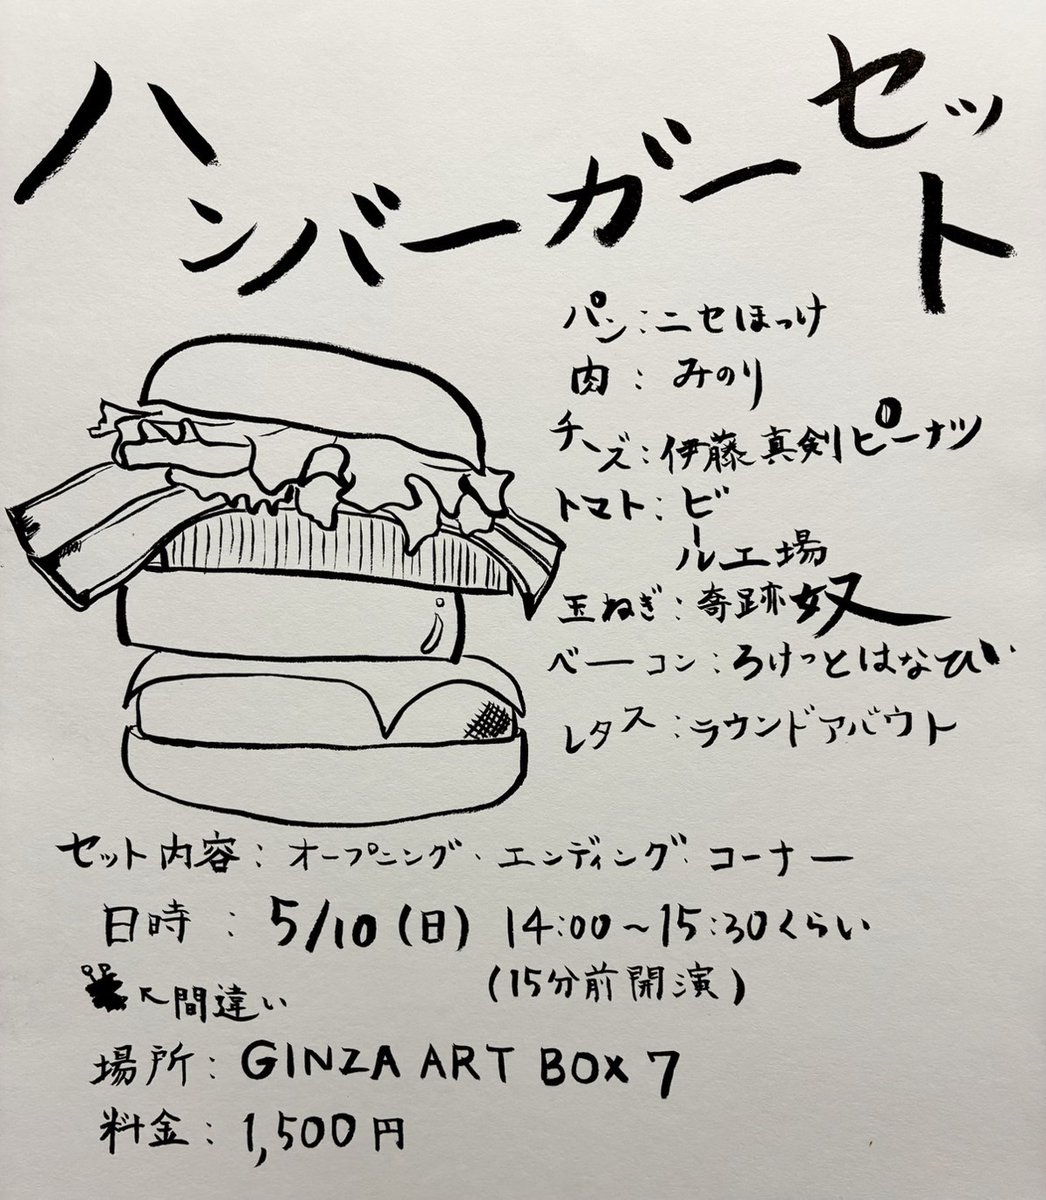 ハンバーガーセット
パン：ニセほっけ
肉：みのり
チーズ：伊藤真剣ピーナツ
トマト：ビール工場
玉ねぎ：奇跡奴
ベーコン：ろけっとはなび
レタス：ラウンドアバウト
セット内容：オープニング・エンディング・コーナー
日時：5/10(日) 14:00～15:30くらい
(15分前開演)
↖間違い
場所：GINZA ART BOX 7
料金：1,500円